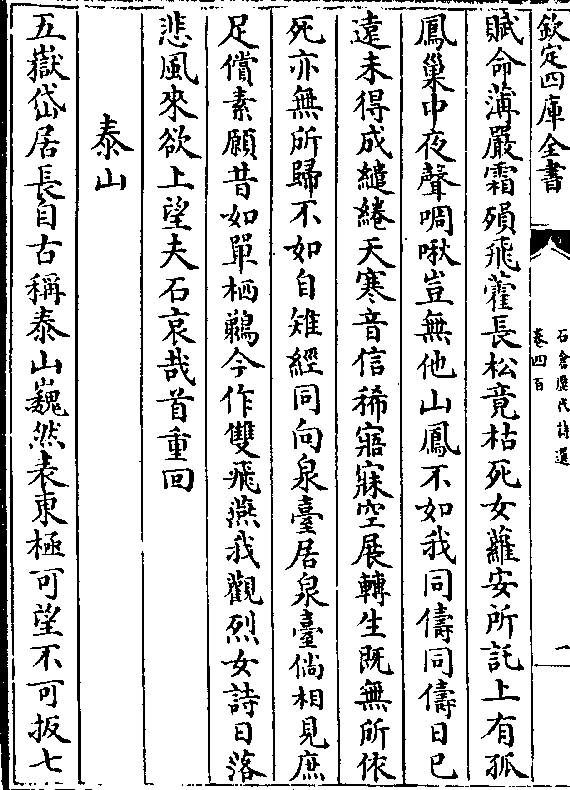 欽定四庫全書
石倉歷代詩選
卷四百
一
賦命薄嚴霜殞飛藿長松竟枯死女蘿安所託上有孤
鳳巢中夜聲啁啾豈無他山鳳不如我同儔同儔日已
遠未得成繾綣天寒音信稀寤寐空展轉生既無所依
死亦無所歸不如自雉經同向泉臺居泉臺倘相見庶
足償素願昔如單栖鵜今作雙飛燕我觀烈女詩日落
悲風來欲上望夫石哀哉首重回
泰山
五嶽岱居長自古稱泰山巍然表東極可望不可扳七